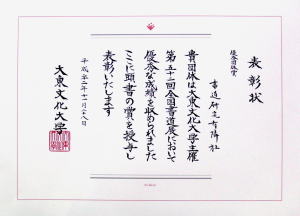 表彰状
優秀団体賞
書道研究有隣社
貴団体は大東文化大学主催
第五十二回全国書道展において
優秀な成績を収められました
ここに頭書の賞を授与し
表彰いたします
平成二十二年十一月二十八日
大東文化大学